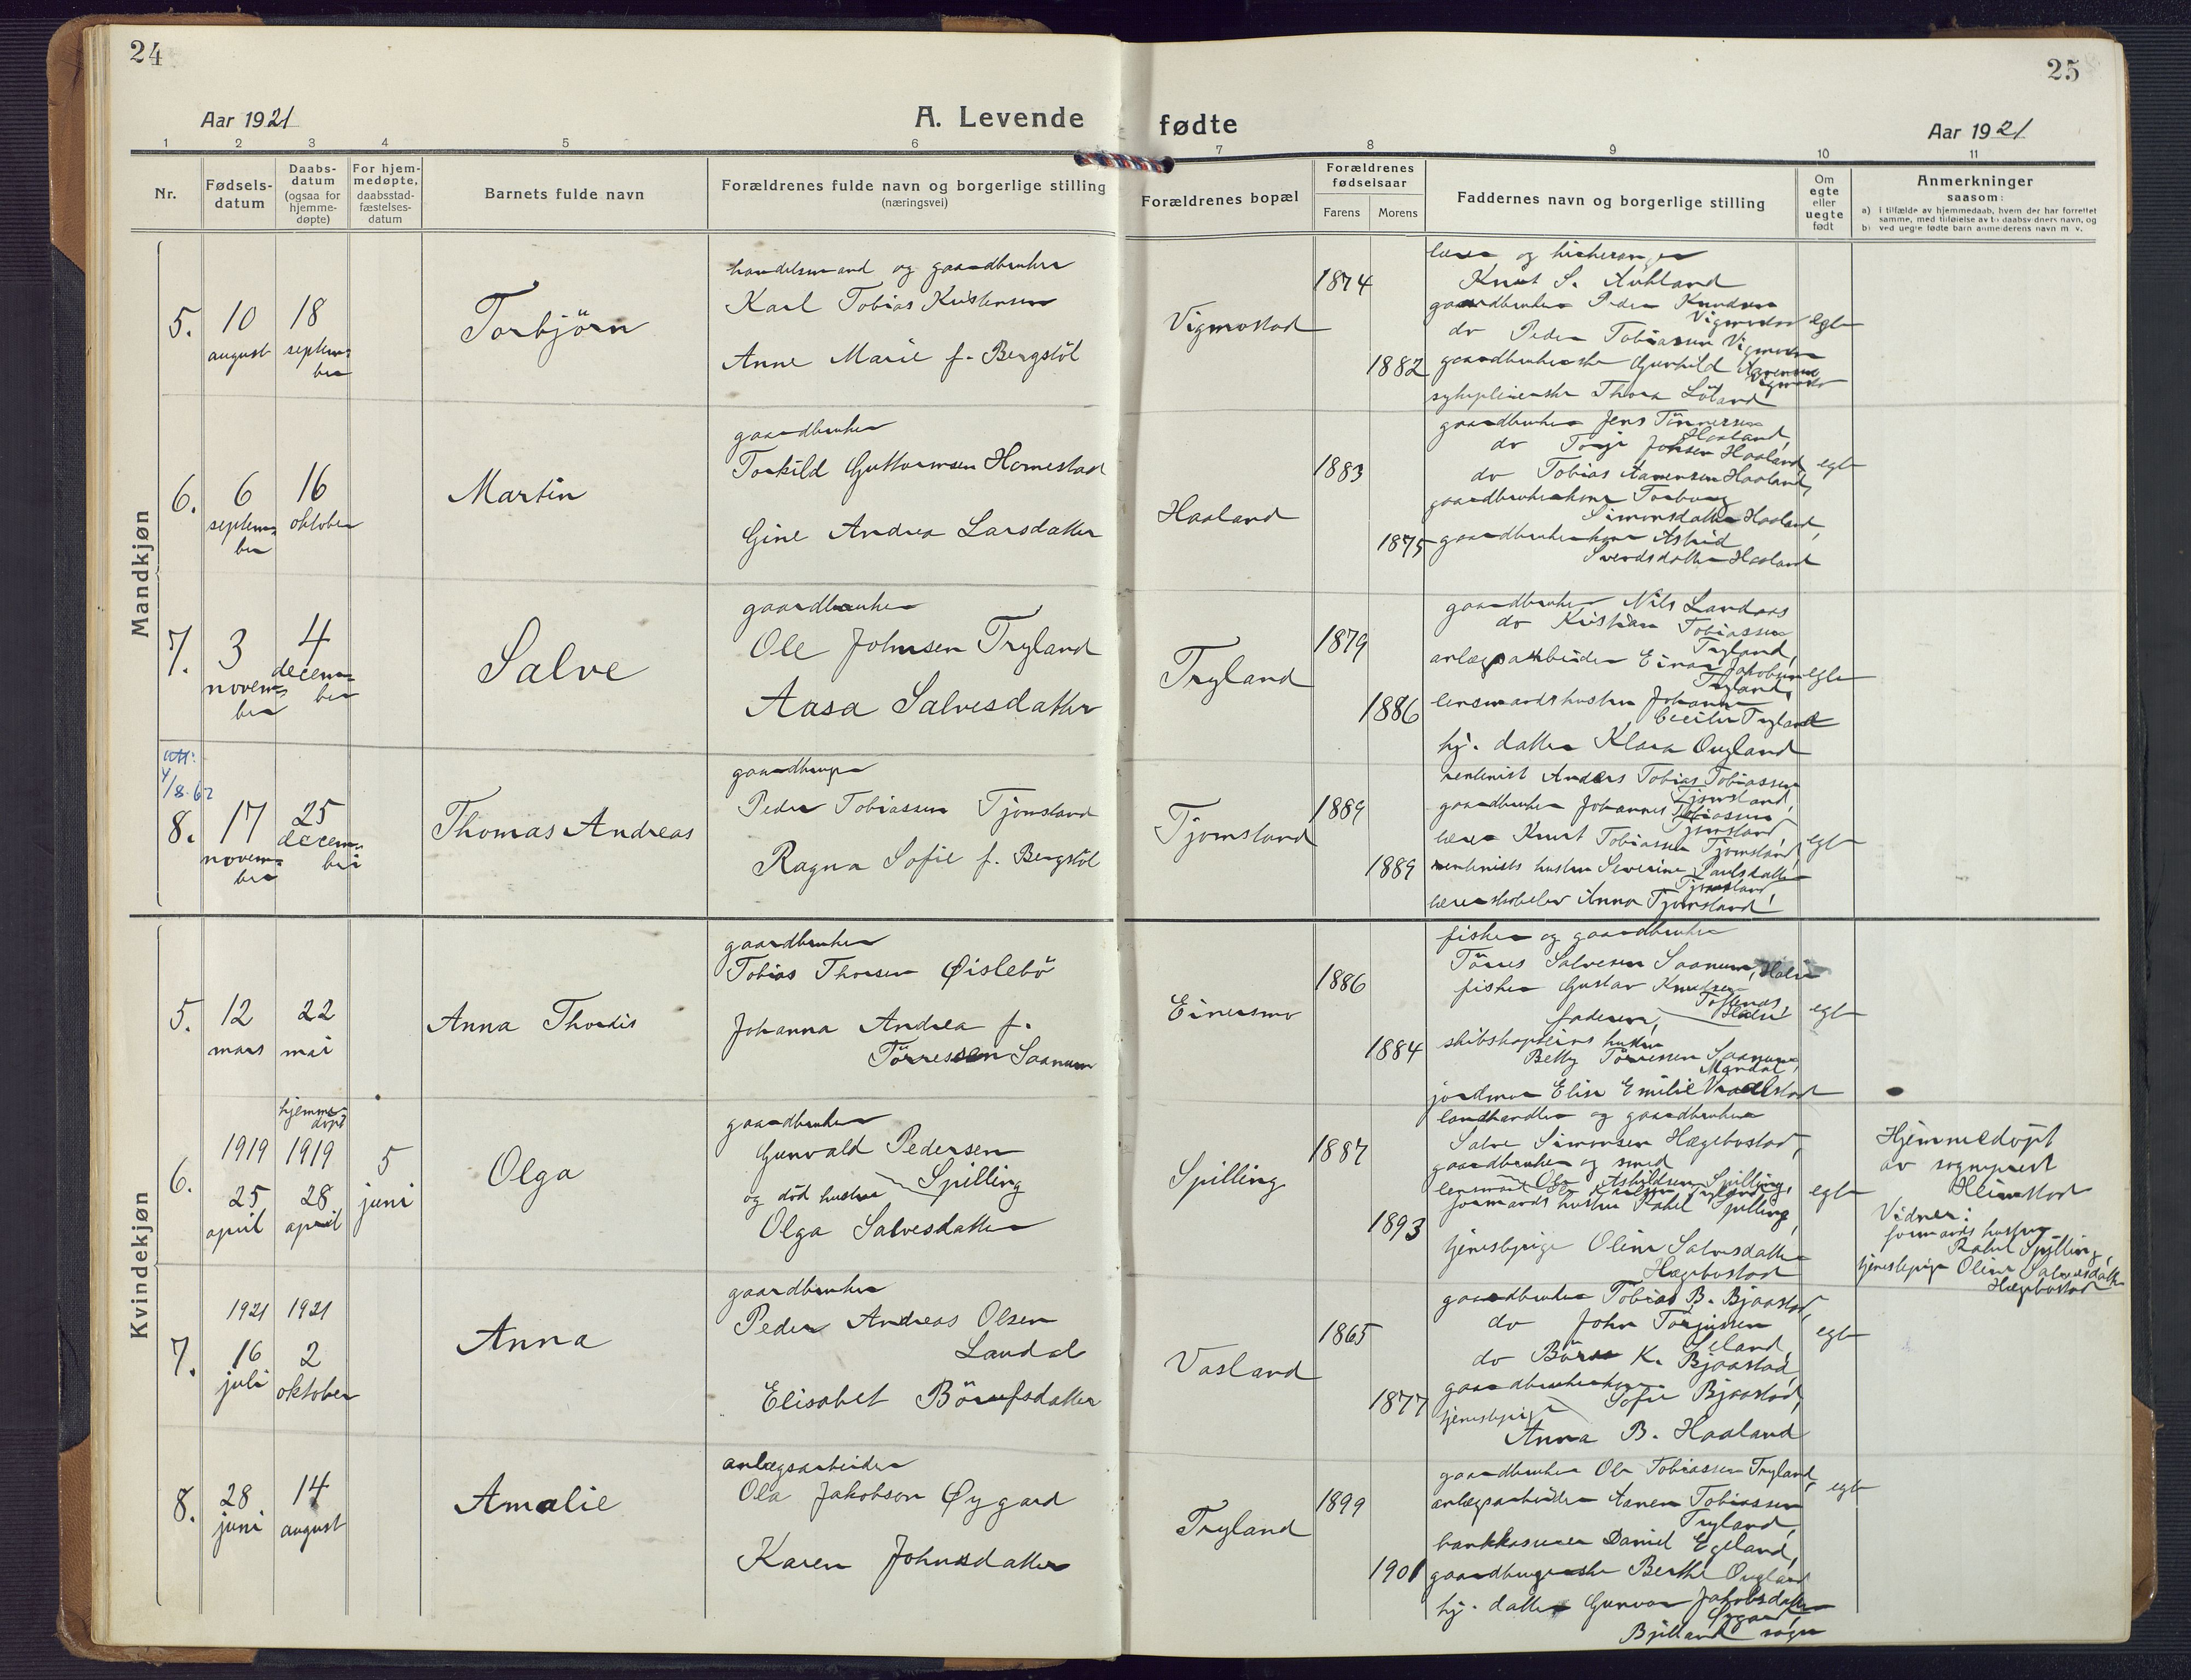 24
Aar 1921
A. Levende
1
2
3
4
5
6
Nr.
Fødsels-
datum
Daabs-
datum
(ogsaa for
hjemme-
døpte)
For hjem-
medøpte,
daabsstad-
fæstelses-
datum
Barnets fulde navn
Forældrenes fulde navn og borgerlige stilling
(næringsvei)
Mandkjøn
5.
10
august
18
septem-
ber
Torbjörn
handelsmand og gaardbruker
Karl Tobias Kristensen
Anne Marie f. Bergstöl
6.
6
septem-
ber
16
oktober
Martin
gaardbruker
Torkild Guttormsen Homestad
Gine Andrea Larsdatter
7.
3
novem-
ber
4
decem-
ber
Salve
gaardbruker
Ole Johnsen Tryland
Aasa Salvesdatter
8.
17
novem-
ber
25
decem-
ber
Thomas Andreas
Peder Tobiassen Tjomsland
Ragna Sofie f. Bergstöl
Kvindekjøn
5.
12
mars
22
mai
Anna Thordis
gaardbruker
Tobias Thorsen Øislebö
Johanna Andrea f.
Törressen Saanum
6.
1919
25
april
hjemme-
döpt
1919
28
april
5
juni
Olga
gaardbruker
Gunvald Pedersen
Spilling
og död hustru
Olga Salvesdatter
7.
1921
16
juli
1921
2
oktober
Anna
gaardbruker
Peder Andreas Olsen
Laudal
Elisabet Börufsdatter
8.
28
juni
14
august
Amalie
anlægsarbeider
Ola Jakobson Øygard
Karen Johnsdatter
25
fødte
Aar 1921
7
8
9
10
11
Forældrenes bopæl
Forældrenes
fødselsaar
Farens
Morens
Faddernes navn og borgerlige stilling
Om
egte
eller
uegte
født
Anmerkninger
saasom:
a) i tilfælde av hjemmedaab, hvem der har forrettet
samme, med tilføielse av to daabsvidners navn, og
b) ved uegte fødte barn anmelderens navn m. v.
Vigmostad
1874
1882
lærer og kirkesanger
Knut S. Aukland
gaardbruker Peder Knudsen
Vigmostad
do Peder Tobiassen Vigmostad
gaardbrukerske Gunhild Aanensen
Vigmostad
sykepleierske Thora Löland
egte
Haaland
1883
1875
gaardbruker Jens Tönnersen
Haaland,
do Terje Johsen Haaland,
do Tobias Aanensen Haaland,
gaardbrukerkone Torborg
Simonsdatter Haaland,
gaardbrukerkone Astrid
Svendsdatter Haaland
egte
Tryland
1879
1886
gaardbruker Nils Landaas
do Kristian Tobiassen
Tryland,
anlægsarbeider Einar Jakobsen
Tryland,
lensmandshustru Johanne
Cecilie Tryland
hj. datter Klara Ougland
egte
Tjomsland
1889
1889
rentenist Anders Tobias Tobiassen
Tjomsland,
gaardbruker Johannes Tobiassen
Tjomsland
lærer Knut Tobiassen Tjomsland,
rentenists hustru Severine Paulsdatter
Tjomsland
lærerskoleelev Anna Tjomsland
egte
Einersmo
1886
1884
fisker og gaardbruker
Törres Salvesen Saanum, Halse
fisker Gustav Knutsen
Toftenes,
Halse
faderen,
skibskapteins hustru
Betty Törressen Saanum,
Mandal,
jordmor Elise Emilie
egte
Spilling
1887
1893
landhandler og gaardbruker
Salve Simonsen Hægebostad,
gaardbruker og smed
Ole Askildsen Spilling,
lensmand
formands hustru Rakel Spilling,
tjenestepige Oline Salvesdatter
Hægebostad
egte
Hjemmedöpt
av sogneprest
Heimstad
Vidner:
formands hustru
Rakel Spilling,
tjenestepige Oline Salvesdatter
Hægebostad
Vasland
1865
1877
gaardbruker Tobias B. Bjaastad,
do John Torjussen
Seland,
do Böru K. Bjaastad,
gaardbrukerkone
Sofie Bjaastad,
tjenestepige
Anna B. Haaland
egte
Tryland
1899
1901
gaardbruker Ole Tobiassen Tryland,
anlægsarbeider Aanen Tobiassen
Tryland,
bankkasserer Daniel Egeland,
gaardbrugerske Berthe Ougland
hj. datter Gunvor Jakobsdatter
Øygard,
Bjelland sogn
egte